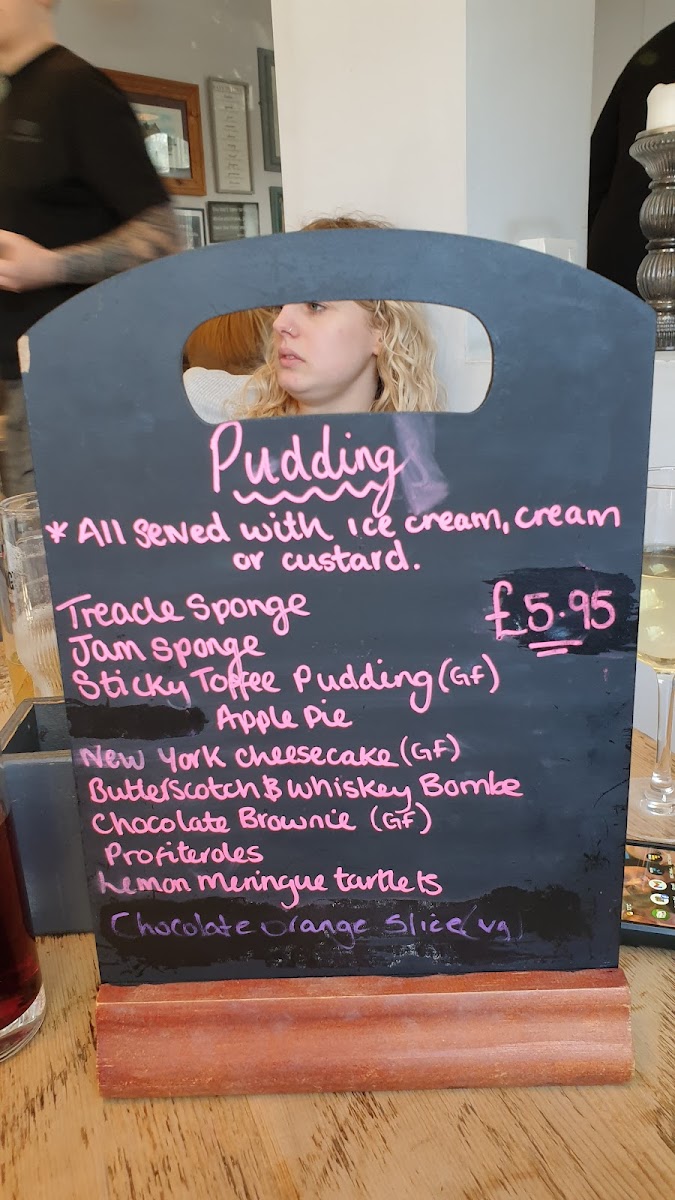 Pudding
* All served with ice cream, cream
or custard.
Treacle Sponge £5.95
Jam sponge
Sticky Toffee Pudding (GF)
Apple Pie
New York cheesecake (GF)
Butterscotch & whiskey Bombe
Chocolate Brownie (GF)
Profiteroles
Lemon meringue tartlets
Chocolate orange slice (vg)